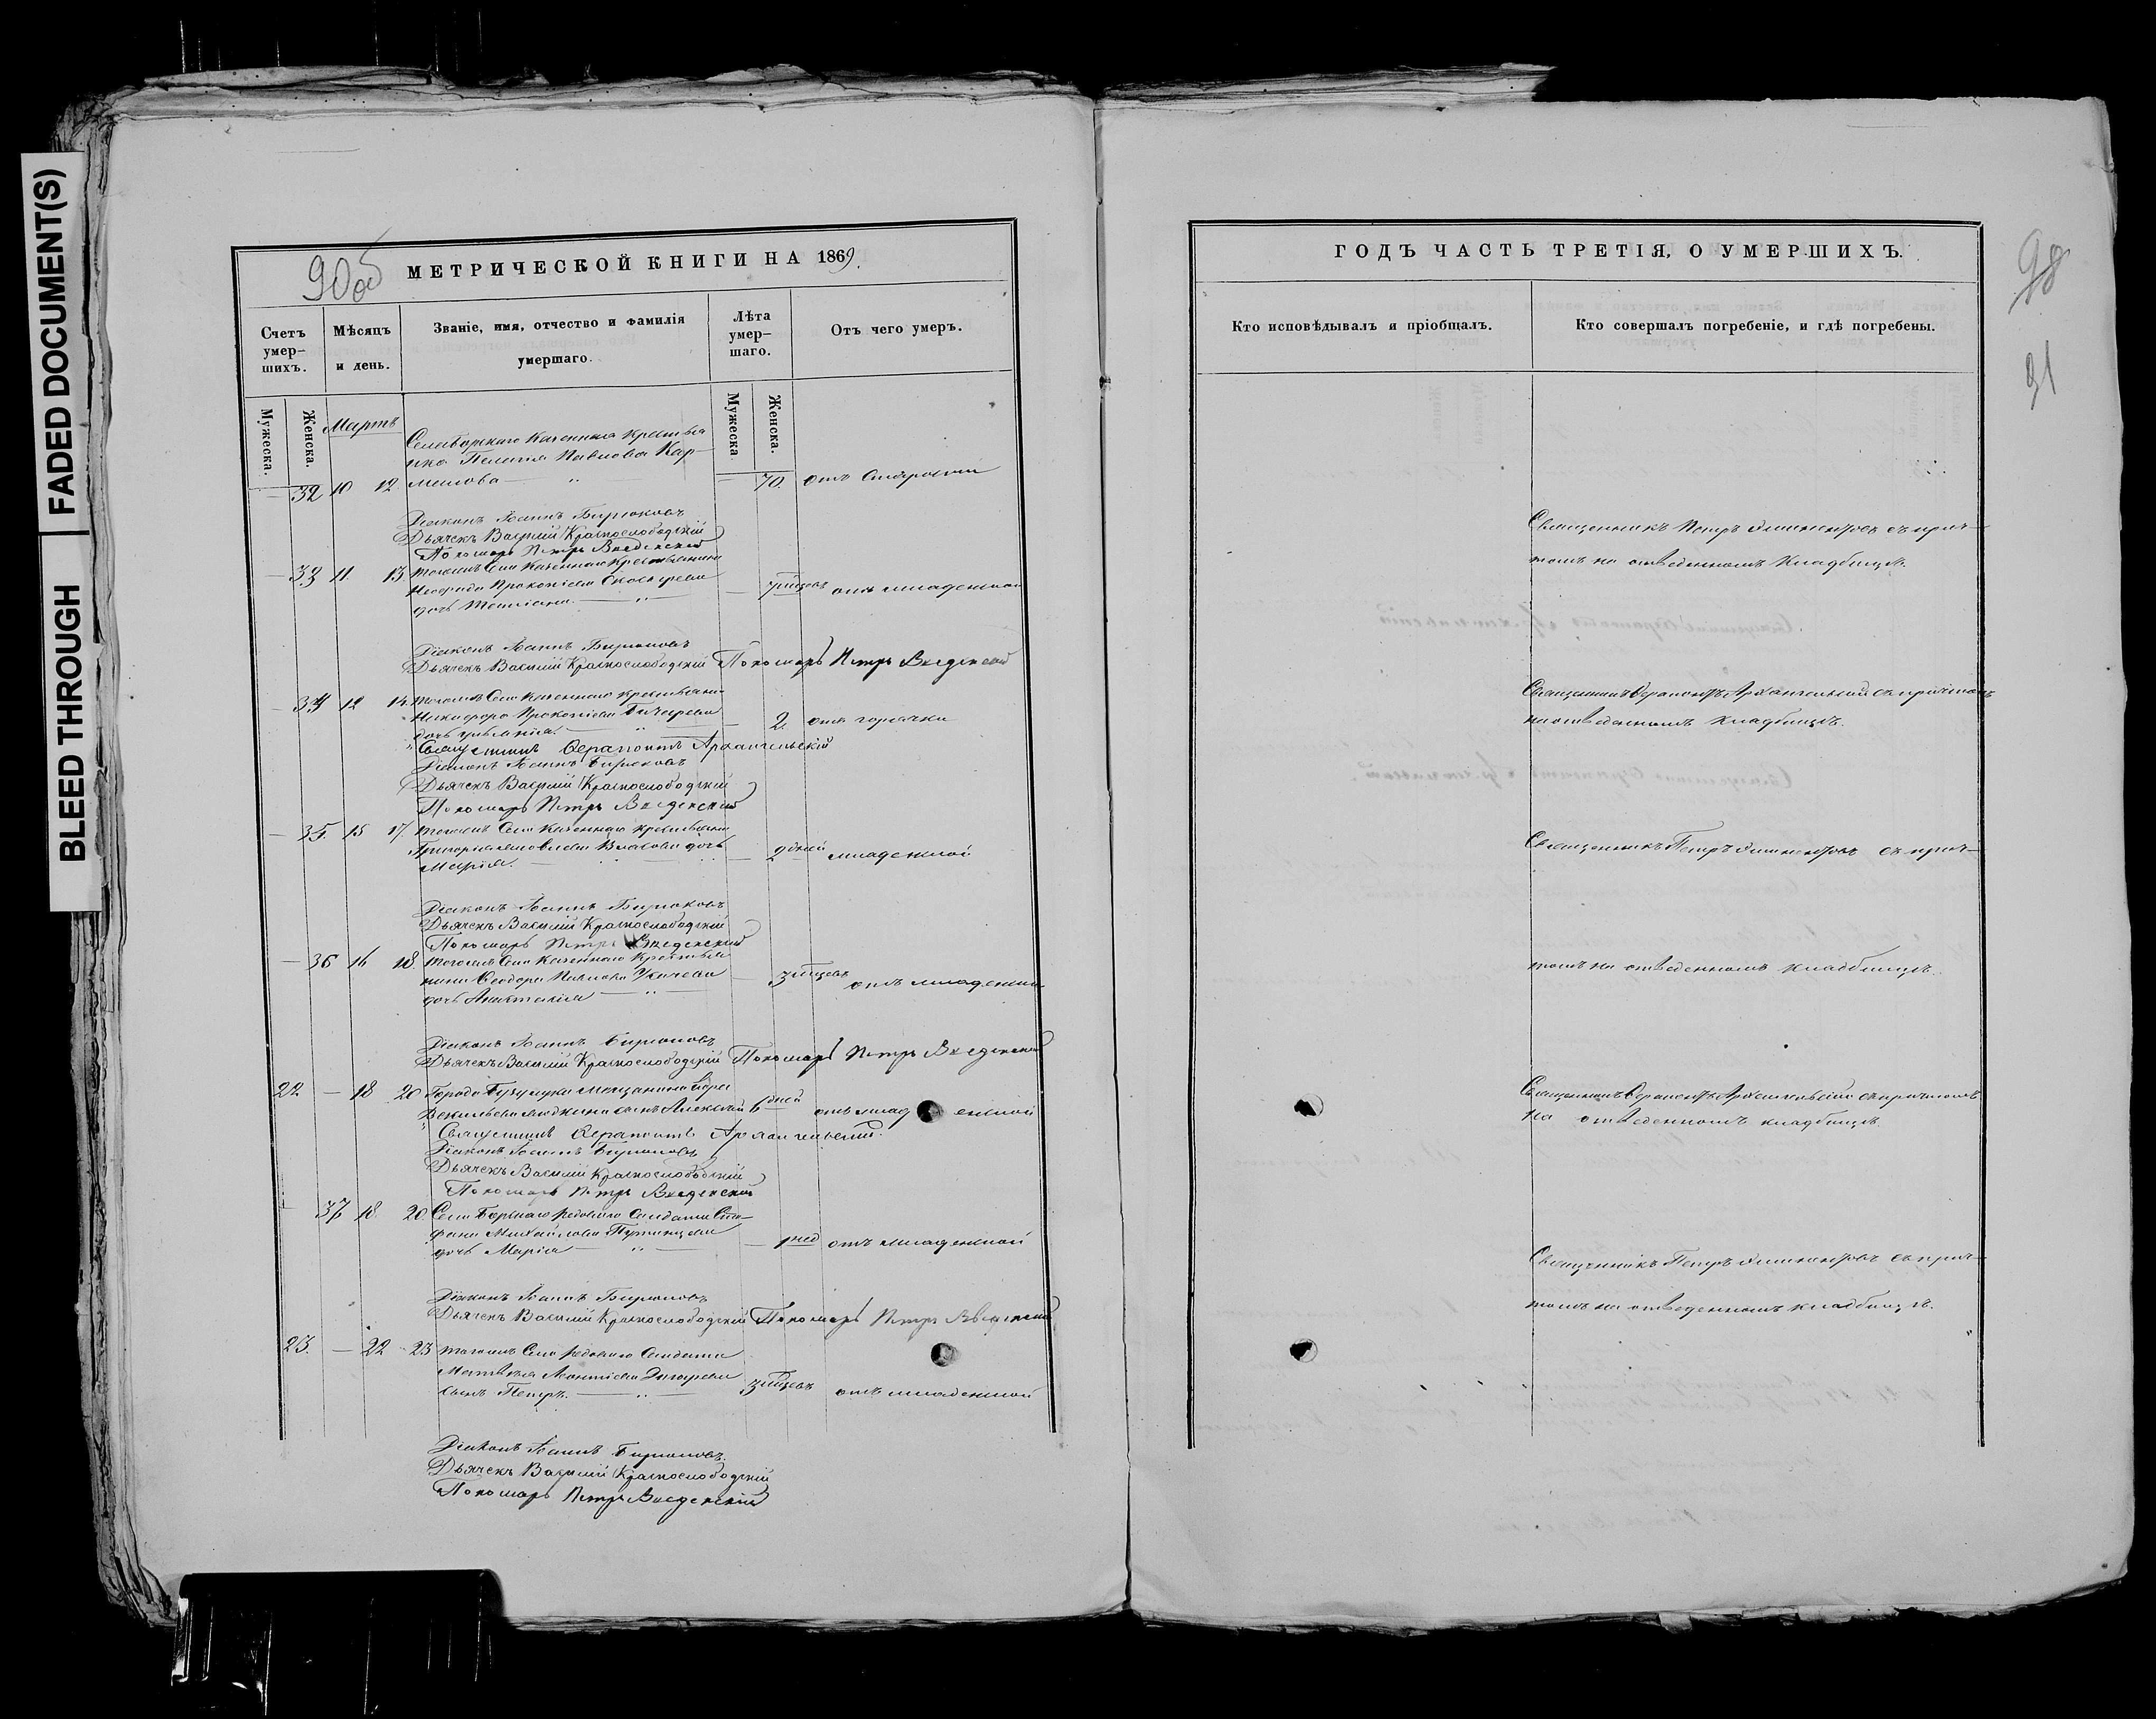 FADED DOCUMENT(S)
BLEED THROUGH
90об
МЕТРИЧЕСКОЙ КНИГИ НА 1869.
Счетъ умер-шихъ.
Мѣсяцъ и день.
Званіе, имя, отчество и фамилія умершаго.
Лѣта умер-шаго.
Отъ чего умеръ.
Мужеска.
Женска.
Мужеска
Женска.
Мартъ
Села Казеннаго крестья
нка Пелагія Павлова Кар-
32 10 12 70. отъ старости
Діаконъ Іоаннъ Бирюковъ
Дьячекъ Василій Краснослободскій
Пономарь Петръ Введенскій
33 11. 13. Тогожъ Села Казеннаго Крестьянина
Прокопіева
7 мцевъ отъ младенской
дочь Татіана
Діаконъ Іоаннъ Бирюковъ
Дьячекъ Василій Краснослободскій Пономарь Петръ Введенскій
34 12 14. Тогожъ Села Казеннаго крестьяни
Никифора Прокопіева
2 отъ горячки
дочь
Священникъ Ѳерапонтъ Архангельскій
Діаконъ Іоаннъ Бирюковъ
Дьячекъ Василій Краснослободскій
Пономарь Петръ Введенскій
35. 15 17. Тогожъ Села Казеннаго крестьяни
Григорія Власова дочь
2 дней младенской
Марія.
Діаконъ Іоаннъ Бирюковъ
Дьячекъ Василій Краснослободскій
Пономарь Петръ Введенскій
36 16 18. Тогожъ Села Казеннаго Крестья
нина Ѳеодора Павлова
3 мцевъ отъ младенской
дочь Анастасія
Діаконъ Іоаннъ Бирюковъ
Дьячекъ Василій Краснослободскій Пономарь Петръ Введенскій
22 — 18 20 Города Бузулука мещанина
сынъ Алексѣй 6 дней отъ младенской
Священникъ Ѳерапонтъ Архангельскій.
Діаконъ Іоаннъ Бирюковъ
Дьячекъ Василій Краснослободскій
Пономарь Петръ Введенскій
37 18. 20. Села рядового Солдата Сте-
фана Михайлова
дочь Марія 1 нед отъ младенской
Діаконъ Іоаннъ Бирюковъ
Дьячекъ Василій Краснослободскій Пономарь Петръ Введенскій
23. — 22 23 Тогожъ Села рядового Солдата
Матвѣя Леонтіева
сынъ Петръ. 3 мцевъ отъ младенской
Діаконъ Іоаннъ Бирюковъ.
Дьячекъ Василій Краснослободскій
Пономарь Петръ Введенскій
ГОДЪ ЧАСТЬ ТРЕТІЯ, О УМЕРШИХЪ.
98
91
Кто исповѣдывалъ и пріобщалъ.
Кто совершалъ погребеніе, и гдѣ погребены.
Священникъ Петръ съ прич-
томъ на отведенномъ кладбищѣ.
Священникъ Ѳерапонтъ Архангельскій съ причтомъ
на отведенномъ кладбищѣ.
Священникъ Петръ съ прич-
томъ на отведенномъ кладбищѣ.
Священникъ Ѳерапонтъ Архангельскій съ причтомъ
на отведенномъ кладбищѣ.
Священникъ Петръ съ прич-
томъ на отведенномъ кладбищѣ.